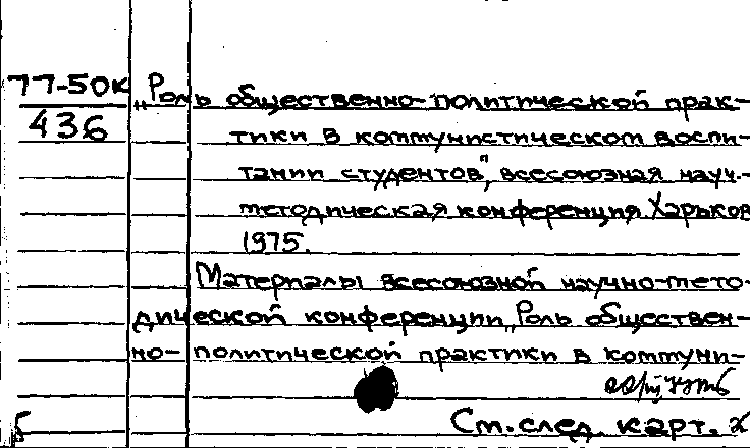 77-50к
436
„Роль общественно-политической прак-
тики в коммунистическом воспи-
тании студентов", всесоюзная науч.-
методическая конференция. Харьков
1975.
Материалы всесоюзной научно-мето-
дической конференции „Роль обществен-
но-политической практики в коммуни-
См. след. карт.